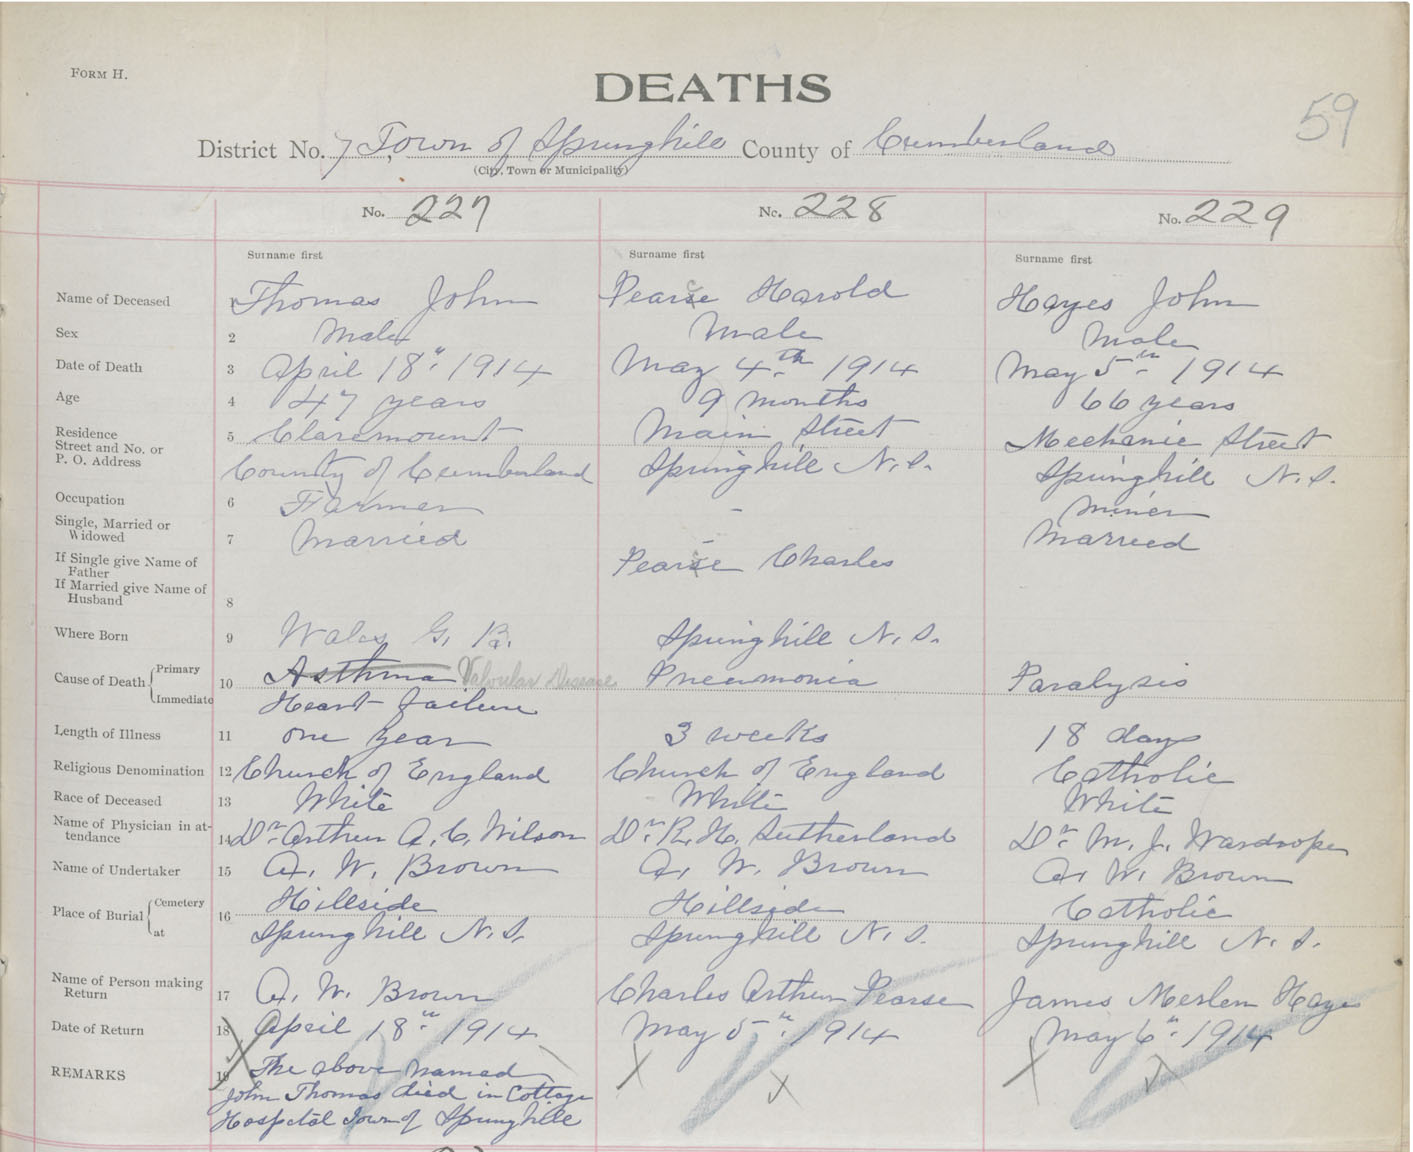 FORM H.
DEATHS
59
District No. 7, Town of Springhill County of Cumberland
(City, Town or Municipality)
No. 227 No. 228 No. 229
Surname first Surname first Surname first
Name of Deceased 1 Thomas John Pearse Harold Hayes John
Sex 2 Male Male Male
Date of Death 3 April 18" 1914 May 4th 1914 May 5th 1914
Age 4 47 years 9 months 66 years
Residence 5 Claremount Main Street Mechanic Street
Street and No. or
P. O. Address County of Cumberland Springhill N.S. Springhill N.S.
Occupation 6 Farmer - Miner
Single, Married or
Widowed 7 Married Married
If Single give Name of
Father Pearse Charles
If Married give Name of
Husband 8
Where Born 9 Wales G. B. Springhill N.S.
Cause of Death Primary 10 Asthma Valvular Disease Pneumonia Paralysis
Immediate Heart failure
Length of Illness 11 one year 3 weeks 18 days
Religious Denomination 12 Church of England Church of England Catholic
Race of Deceased 13 White White White
Name of Physician in at-
tendance 14 Dr. Arthur A. C. Wilson Dr. R. H. Sutherland Dr. M. J. Wardrope
Name of Undertaker 15 A. W. Brown A. W. Brown A. W. Brown
Place of Burial Cemetery 16 Hillside Hillside Catholic
at Springhill N.S. Springhill N.S. Springhill N.S.
Name of Person making
Return 17 A. W. Brown Charles Arthur Pearse James Merlen Hayes
Date of Return 18 April 18th 1914 May 5th 1914 May 6th 1914
REMARKS 19 The above named
John Thomas died in Cottage
Hospital Town of Springhill